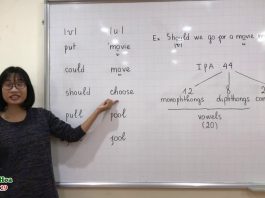 /ʊ/ /u/
put movie
could move
should choose
pull pool
fool
Ex: Should we go for a movie
IPA 44
12 8 2
monophthongs diphthongs
vowels
(20)